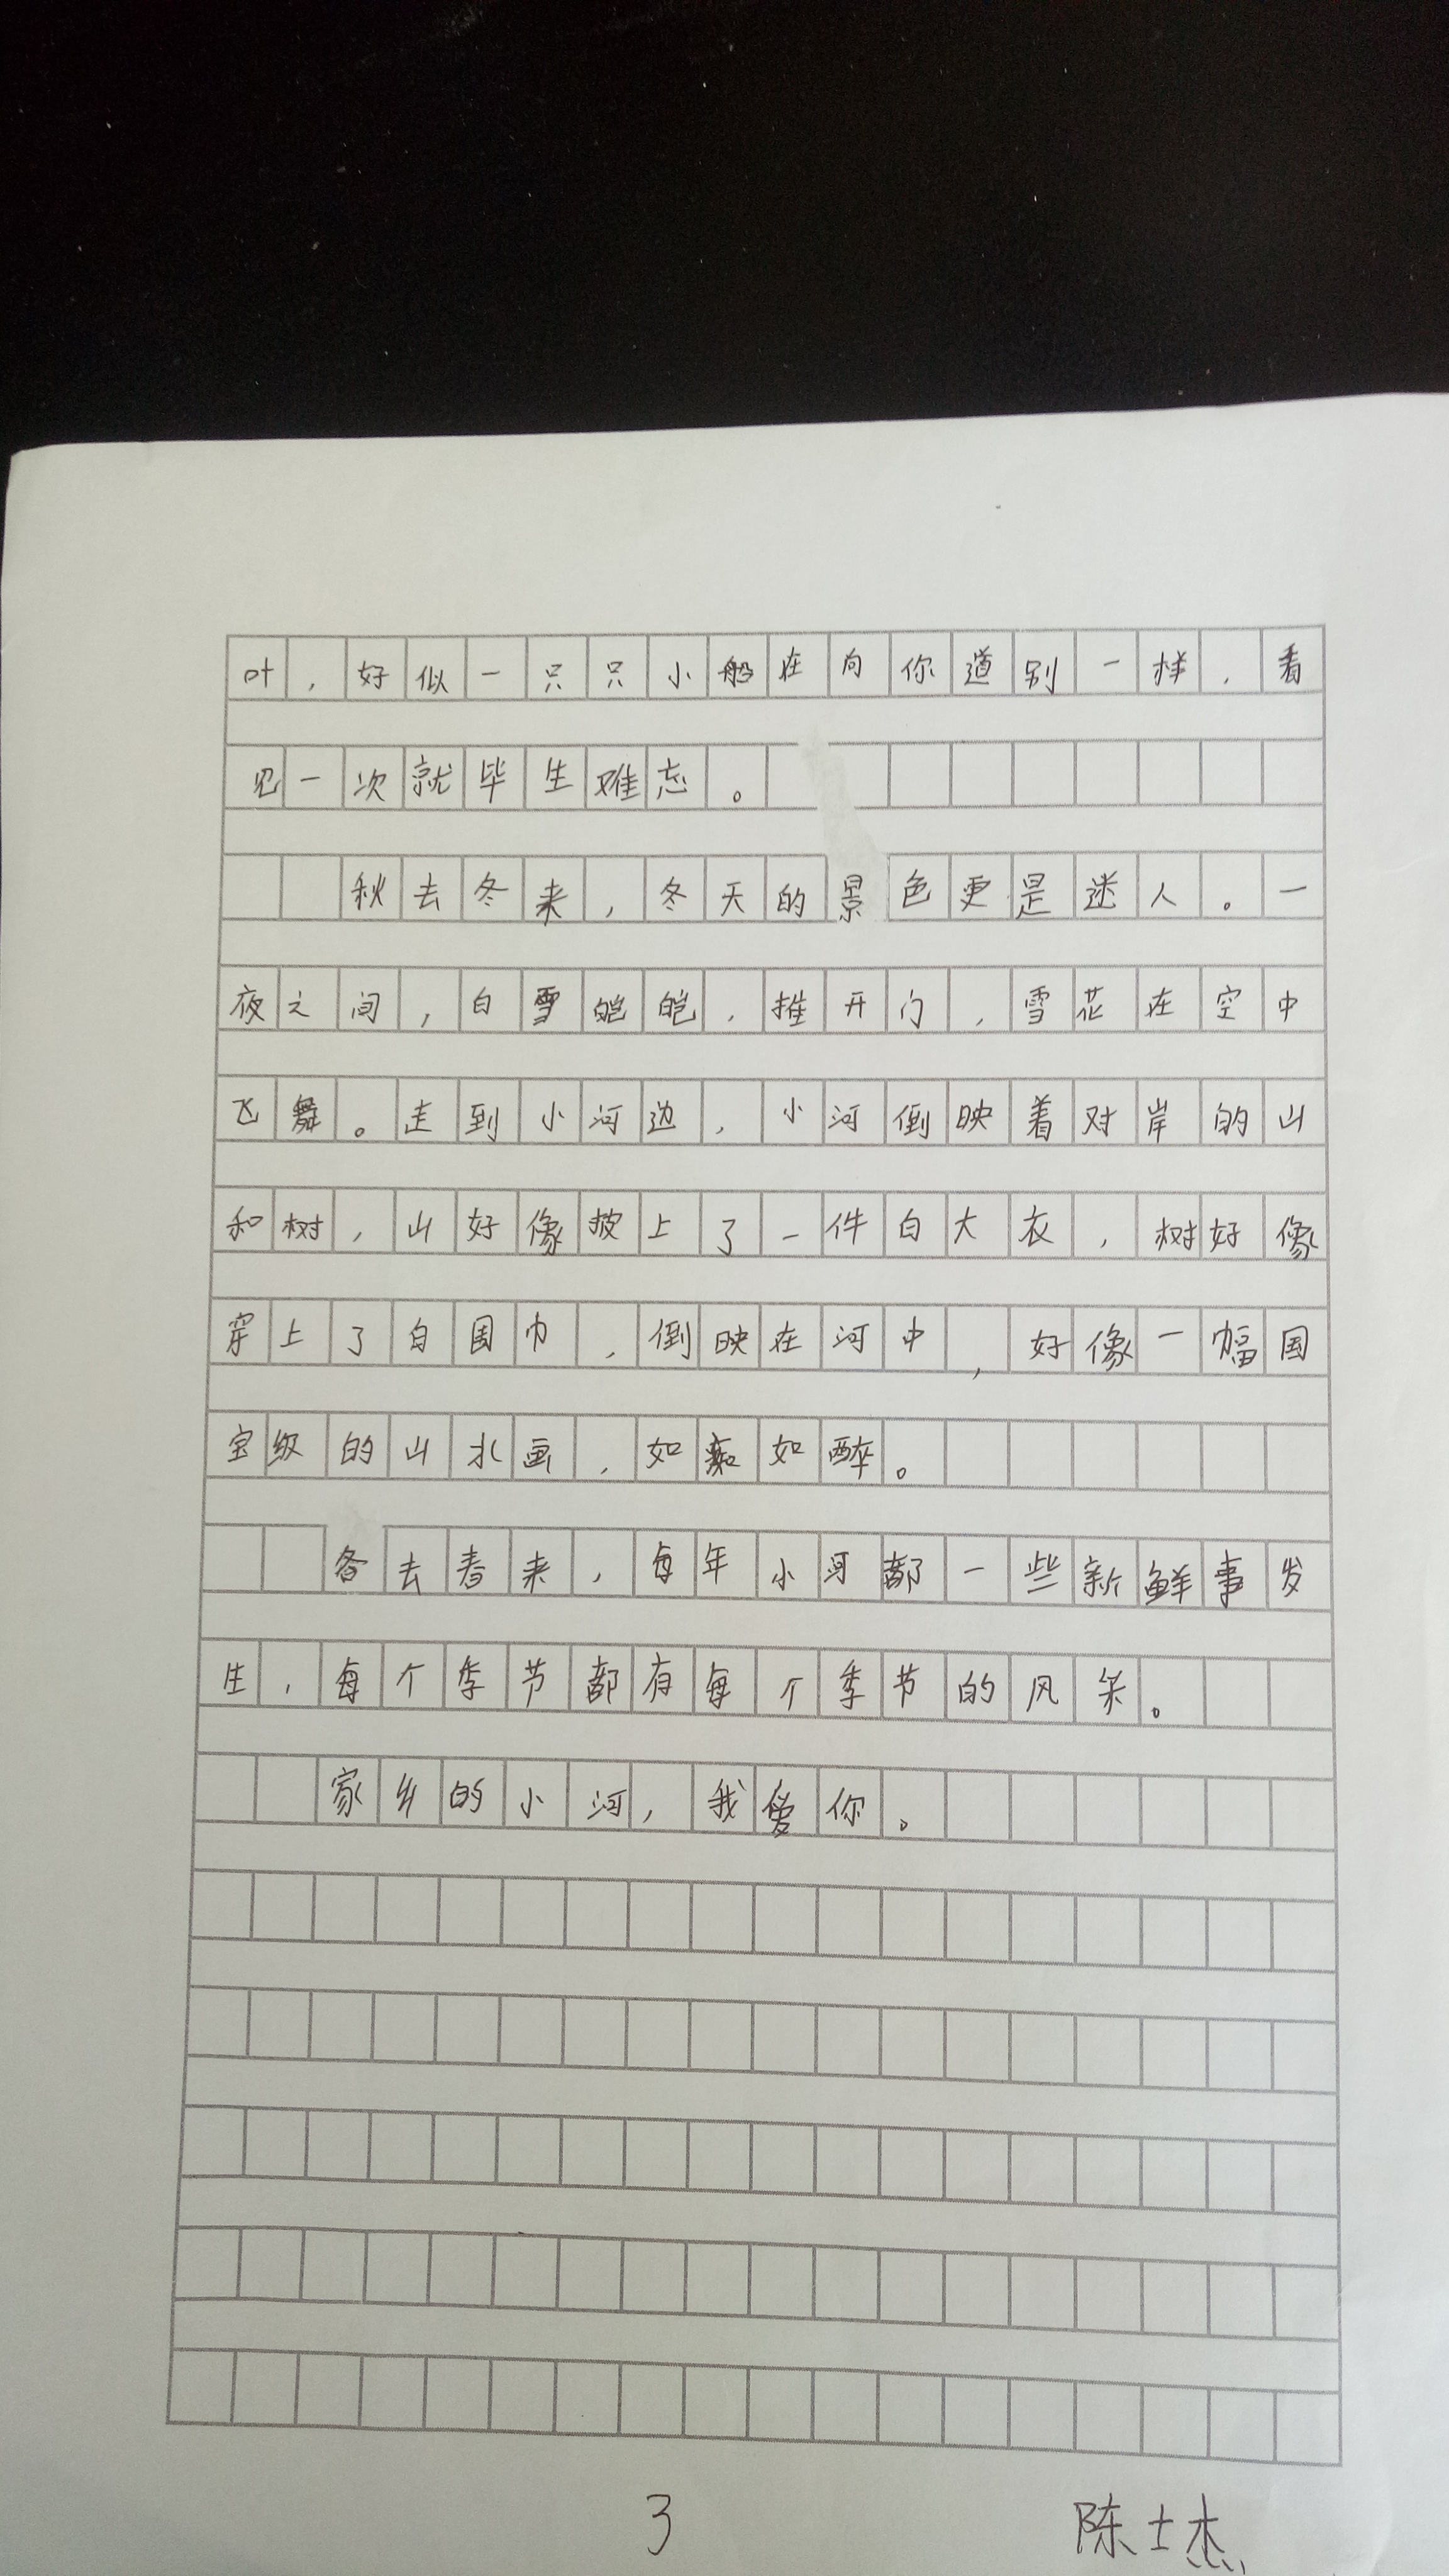 叶，好似一只只小船在向你道别一样，看
见一次就毕生难忘。
秋去冬来，冬天的景色更是迷人。一
夜之间，白雪皑皑，推开门，雪花在空中
飞舞。走到小河边，小河倒映着对岸的山
和树，山好像披上了一件白大衣，树好像
穿上了白围巾，倒映在河中，好像一幅国
宝级的山水画，如痴如醉。
冬去春来，每年小河都一些新鲜事发
生，每个季节都有每个季节的风采。
家乡的小河，我爱你。
3 陈士杰